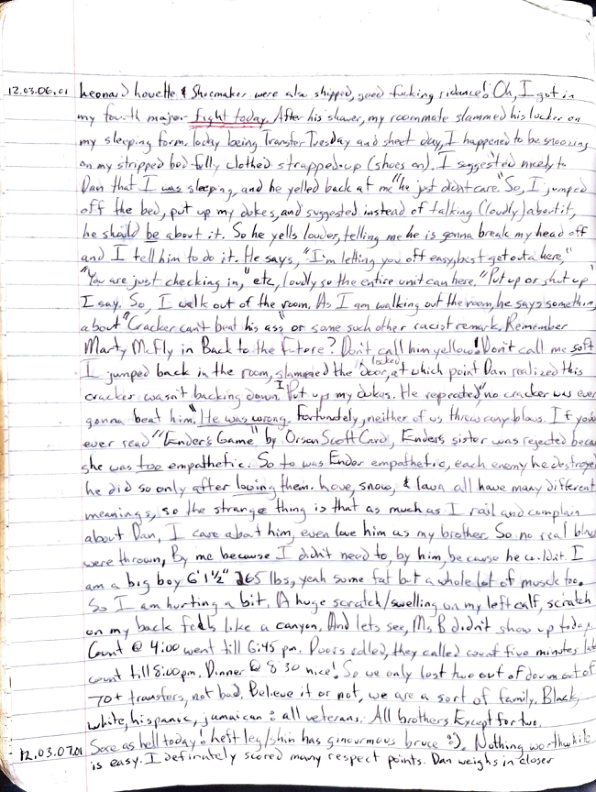 12.03.06.01 Leonard Louette & Shoemaker were also shipped, good fucking ridance! Oh, I got in
my fourth major fight today. After his shower, my roommate slammed his locker on
my sleeping form. Today being Transfer Tuesday and sheet day, I happened to be snoozing
on my stripped bed fully clothed strapped-up (shoes on). I suggested nicely to
Dan that I was sleeping, and he yelled back at me "he just didn't care." So, I jumped
off the bed, put up my dukes, and suggested instead of talking (loudly) about it,
he should be about it. So he yells louder, telling me he is gonna break my head off
and I tell him to do it. He says, "I'm letting you off easy, best get outa here,"
"You are just checking in," etc, loudly so the entire unit can here. "Put up or shut up"
I say. So, I walk out of the room. As I am walking out the room, he says something
about "Cracker can't beat his ass" or some such other racist remark. Remember
Marty McFly in Back to the Future? Don't call him yellow! Don't call me soft
I jumped back in the room, slammed the locked door, at which point Dan realized this
cracker wasn't backing down. I Put up my dukes. He repeated "no cracker was ever
gonna beat him." He was wrong. Fortunately, neither of us threw any blows. If you
ever read "Ender's Game" by Orson Scott Card, Enders sister was rejected because
she was too empathetic. So to was Ender empathetic, each enemy he destroyed
he did so only after loving them. Love, snow, & lava all have many different
meanings, so the strange thing is that as much as I rail and complain
about Dan, I care about him, even love him as my brother. So no real blows
were thrown, By me because I didn't need to, by him, because he couldn't. I
am a big boy 6' 1½" 265 lbs, yeah some fat but a whole lot of muscle too.
So I am hurting a bit. A huge scratch/swelling on my left calf, scratch
on my back feels like a canyon. And lets see, Ms. B didn't show up today.
Count @ 4:00 went till 6:45 pm. Doors rolled, they called count five minutes late
count till 8:00pm. Dinner @ 8:30 nice! So we only lost two out of dorm out of
70+ transfers, not bad. Believe it or not, we are a sort of family. Black,
white, hispanic, jamaican : all veterans. All brothers Except for two.
12.03.07.01 Sore as hell today! Left leg/shin has ginourmous bruce :). Nothing worthwhile
is easy. I definately scored many respect points. Dan weighs in closer